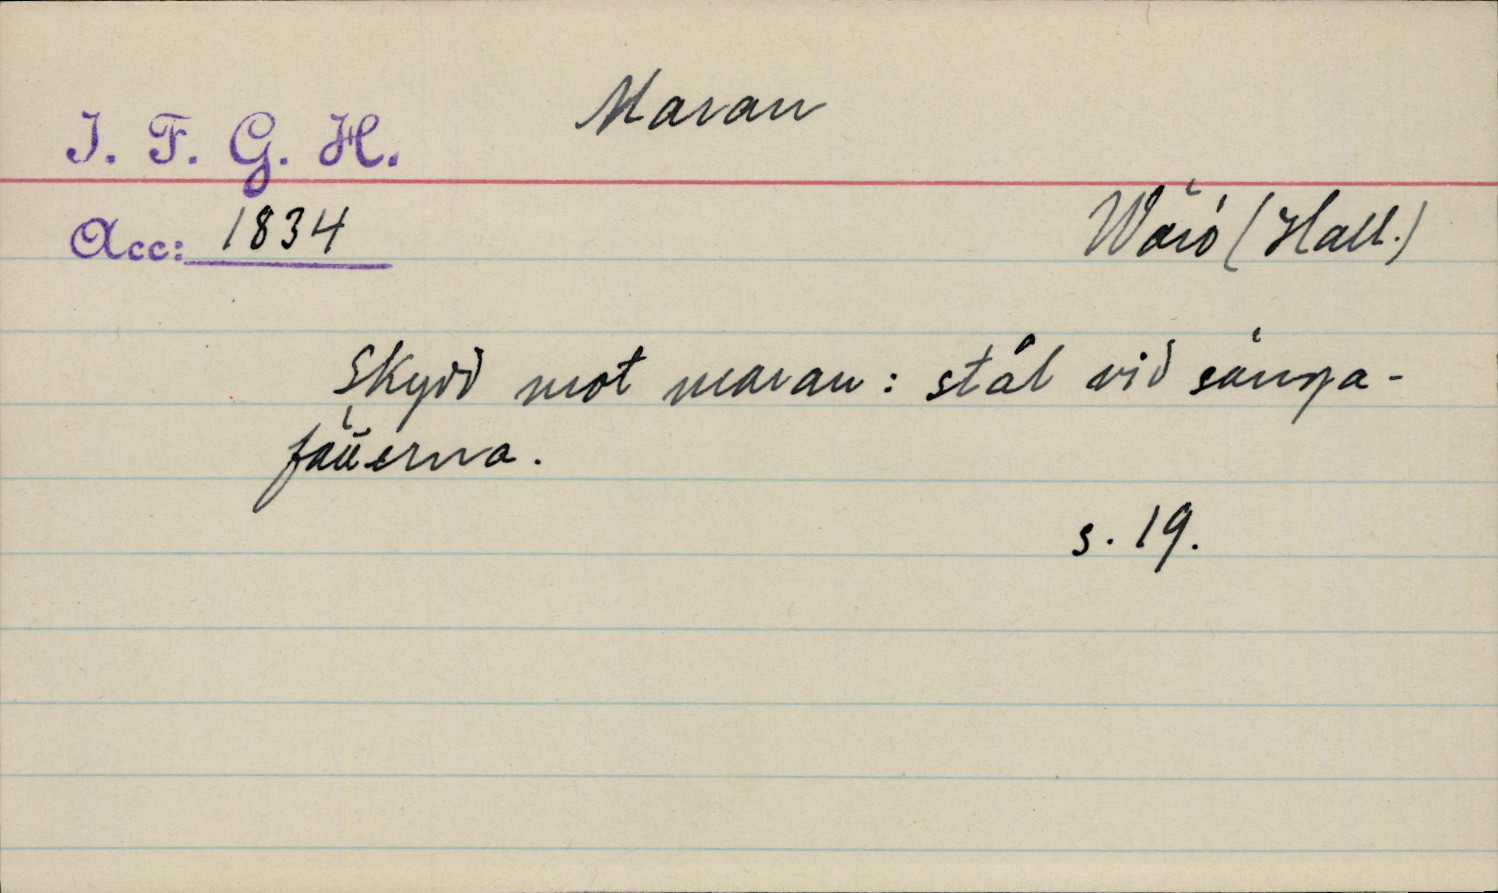 Maran
I. F. G. H.
Acc: 1834
Wärö (Hall.)
Skydd mot maran: stål vid sänga-
fötterna.
s. 19.